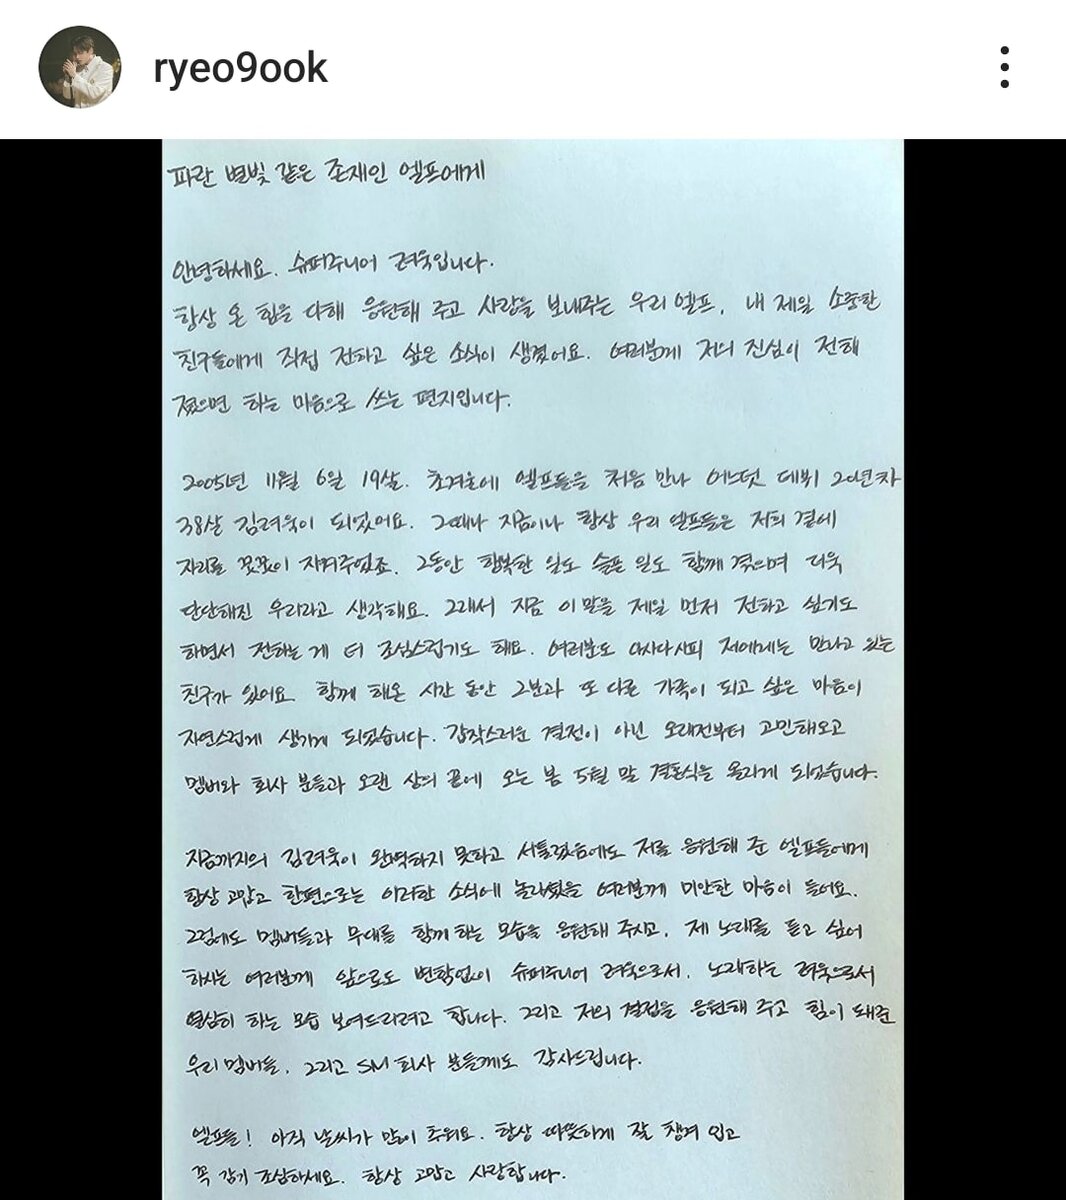 ryeo9ook
파란 별빛 같은 존재인 엘프에게
안녕하세요. 슈퍼주니어 려욱입니다.
항상 온 힘을 다해 응원해 주고 사랑을 보내주는 우리 엘프, 내 제일 소중한
친구들에게 직접 전하고 싶은 소식이 생겼어요. 여러분께 저의 진심이 전해
졌으면 하는 마음으로 쓰는 편지입니다.
2005년 11월 6일 19살. 초겨울에 엘프들을 처음 만나 어느덧 데뷔 20년차
38살 김려욱이 되었어요. 그때나 지금이나 항상 우리 엘프들은 저희 곁에
자리를 꿋꿋이 지켜주었죠. 그동안 행복한 일도 슬픈 일도 함께 겪으며 더욱
단단해진 우리라고 생각해요. 그래서 지금 이 말을 제일 먼저 전하고 싶기도
하면서 전하는 게 더 조심스럽기도 해요. 여러분도 아시다시피 저에게는 만나고 있는
친구가 있어요. 함께 해온 시간 동안 그분과 또 다른 가족이 되고 싶은 마음이
자연스럽게 생기게 되었습니다. 갑작스러운 결정이 아닌 오래전부터 고민해오고
멤버와 회사 분들과 오랜 상의 끝에 오는 봄 5월 말 결혼식을 올리게 되었습니다.
지금까지의 김려욱이 완벽하지 못하고 서툴렀음에도 저를 응원해 준 엘프들에게
항상 고맙고 한편으로는 이러한 소식에 놀라셨을 여러분께 미안한 마음이 들어요.
그럼에도 멤버들과 무대를 함께 하는 모습을 응원해 주시고, 제 노래를 듣고 싶어
하시는 여러분께 앞으로도 변함없이 슈퍼주니어 려욱으로서, 노래하는 려욱으로서
열심히 하는 모습 보여드리려고 합니다. 그리고 저의 결정을 응원해 주고 힘이 돼준
우리 멤버들, 그리고 SM 회사 분들께도 감사드립니다.
엘프들! 아직 날씨가 많이 추워요. 항상 따뜻하게 잘 챙겨 입고
꼭 감기 조심하세요. 항상 고맙고 사랑합니다.